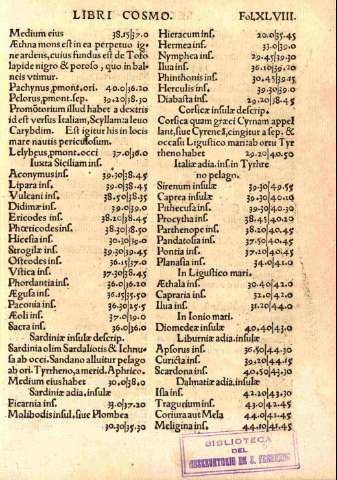 LIBRI COSMO. Fol. XLVIII.
Medium eius 38.15|37.0
Æthna mons est in ea perpetuo ig-
ne ardens, cuius fundus est de Tofo
lapide nigro & poroso, quo in bal-
neis vtimur.
Pachynus, pmont. ori. 40.0|36.20
Pelorus, pmont. sep. 39.20|38.30
Promõtorium illud habet a dextris
id est versus Italiam, Scyllam: a leuo
Carybdim. Est igitur his in locis
mare nautis periculosum.
Lelybęus, pmont. occi 37.0|36.0
Iuxta Siciliam ins.
Aconymus ins. 39.30|38.45
Lipara ins. 39.0|38.45
Vulcani ins. 38.50|38.35
Didimæ ins. 39.0|39.0
Ericodes ins. 38.20|38.45
Phœricodes ins. 38.30|38.50
Hicesia ins. 30.30|39.0
Strogilæ ins. 39.30|39.45
Osteodes ins. 36.15|37.0
Vstica ins. 37.30|38.45
Phordantia ins. 36.0|36.20
Ægusa ins. 36.15|35.50
Paconia ins. 36.30|35.5
Æoli ins. 37.0|39.0
Sacra ins. 36.0|36.0
Sardiniæ insulæ descrip.
Sardinia olim Sardaliotis & Ichnu-
sa ab occi. Sandano alluitur pelago
ab ori. Tyrrheno, a merid. Aphrico.
Medium eius habet 30.0|38.0
Sardiniæ adia, insulæ
Ficarnia ins. 33.0|37.20
Molibodis insul, siue Plombea
30.30|35.30
Hieracum ins. 29.0|35.45
Hermea ins. 33.0|39.0
Nymphea ins. 29.45|39.30
Ilua ins. 36.10|39.20
Phinthonis ins. 30.45|39.15
Herculis ins. 39.30|39.0
Diabasta ins. 29.20|38.45
Corsicæ insulæ descrip.
Corsica quam græci Cyrnum appel
lant, siue Cyrenes, cingitur a sep. &
occasu Ligustico mari: ab ortu Tyr
rheno habet 29.20|40.50
Italiæ adia. ins. in Tyrrhe
no pelago.
Sirenum insulæ 39.30|49.55
Caprea insulæ 39.30|40.0
Pithecusæ ins. 39.30|40.30
Procytha ins. 38.45|40.20
Parthenope ins. 38.20|40.45
Pandatosia ins. 37.50|40.45
Pontia ins. 37.20|40.45
Planasia ins. 34.0|41.0
In Ligustico mari.
Æthala ins. 30.40|42.0
Capraria ins. 32.0|42.0
Ilua ins. 31.20|44.0
In Ionio mari.
Diomedeæ insulæ 40.40|43.0
Liburniæ adia. insulæ
Apsorus ins. 36.50|44.30
Curicta ins. 39.20|44.15
Scardona ins. 40.50|43.30
Dalmatiæ adia. insulæ
Issa ins. 42.20|43.30
Tragurium ins. 43.0|42.45
Corcura aut Mela 44.0|41.45
Meligina ins. 44.10|41.45
BIBLIOTECA
DEL
OBSERVATORIO DE S. FERNANDO